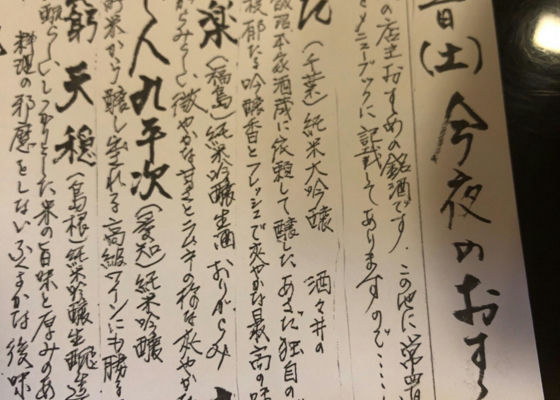 日(土)今夜のおす
の店主おすすめの銘酒です。この他に常四
メニューブックに記載してあります ので・・・・
(千葉)純米大吟醸 酒々井の
飯沼本家酒蔵に依頼して醸した、あさだ独自の
郁たる吟醸香とフレッシュで爽やかな最高の味
楽(福島)純米吟醸生酒 おりがらみ
からみらしい微やかな甘さとラムネの様な爽やかな
九平次(愛知)純米吟醸
米から醸し出される高級ワインにも勝る
天穏(島根)純米吟醸生酛造
らしいしっかりとした米の旨味と厚みのあ
料理の邪魔をしないふくよかな後味